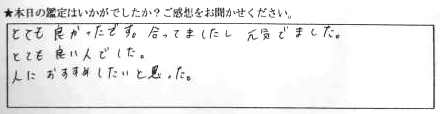 ★本日の鑑定はいかがでしたか？ご感想をお聞かせください。
とても良かったです。合ってましたし 元気でました。
とても良い人でした。
人におすすめしたいと思った。